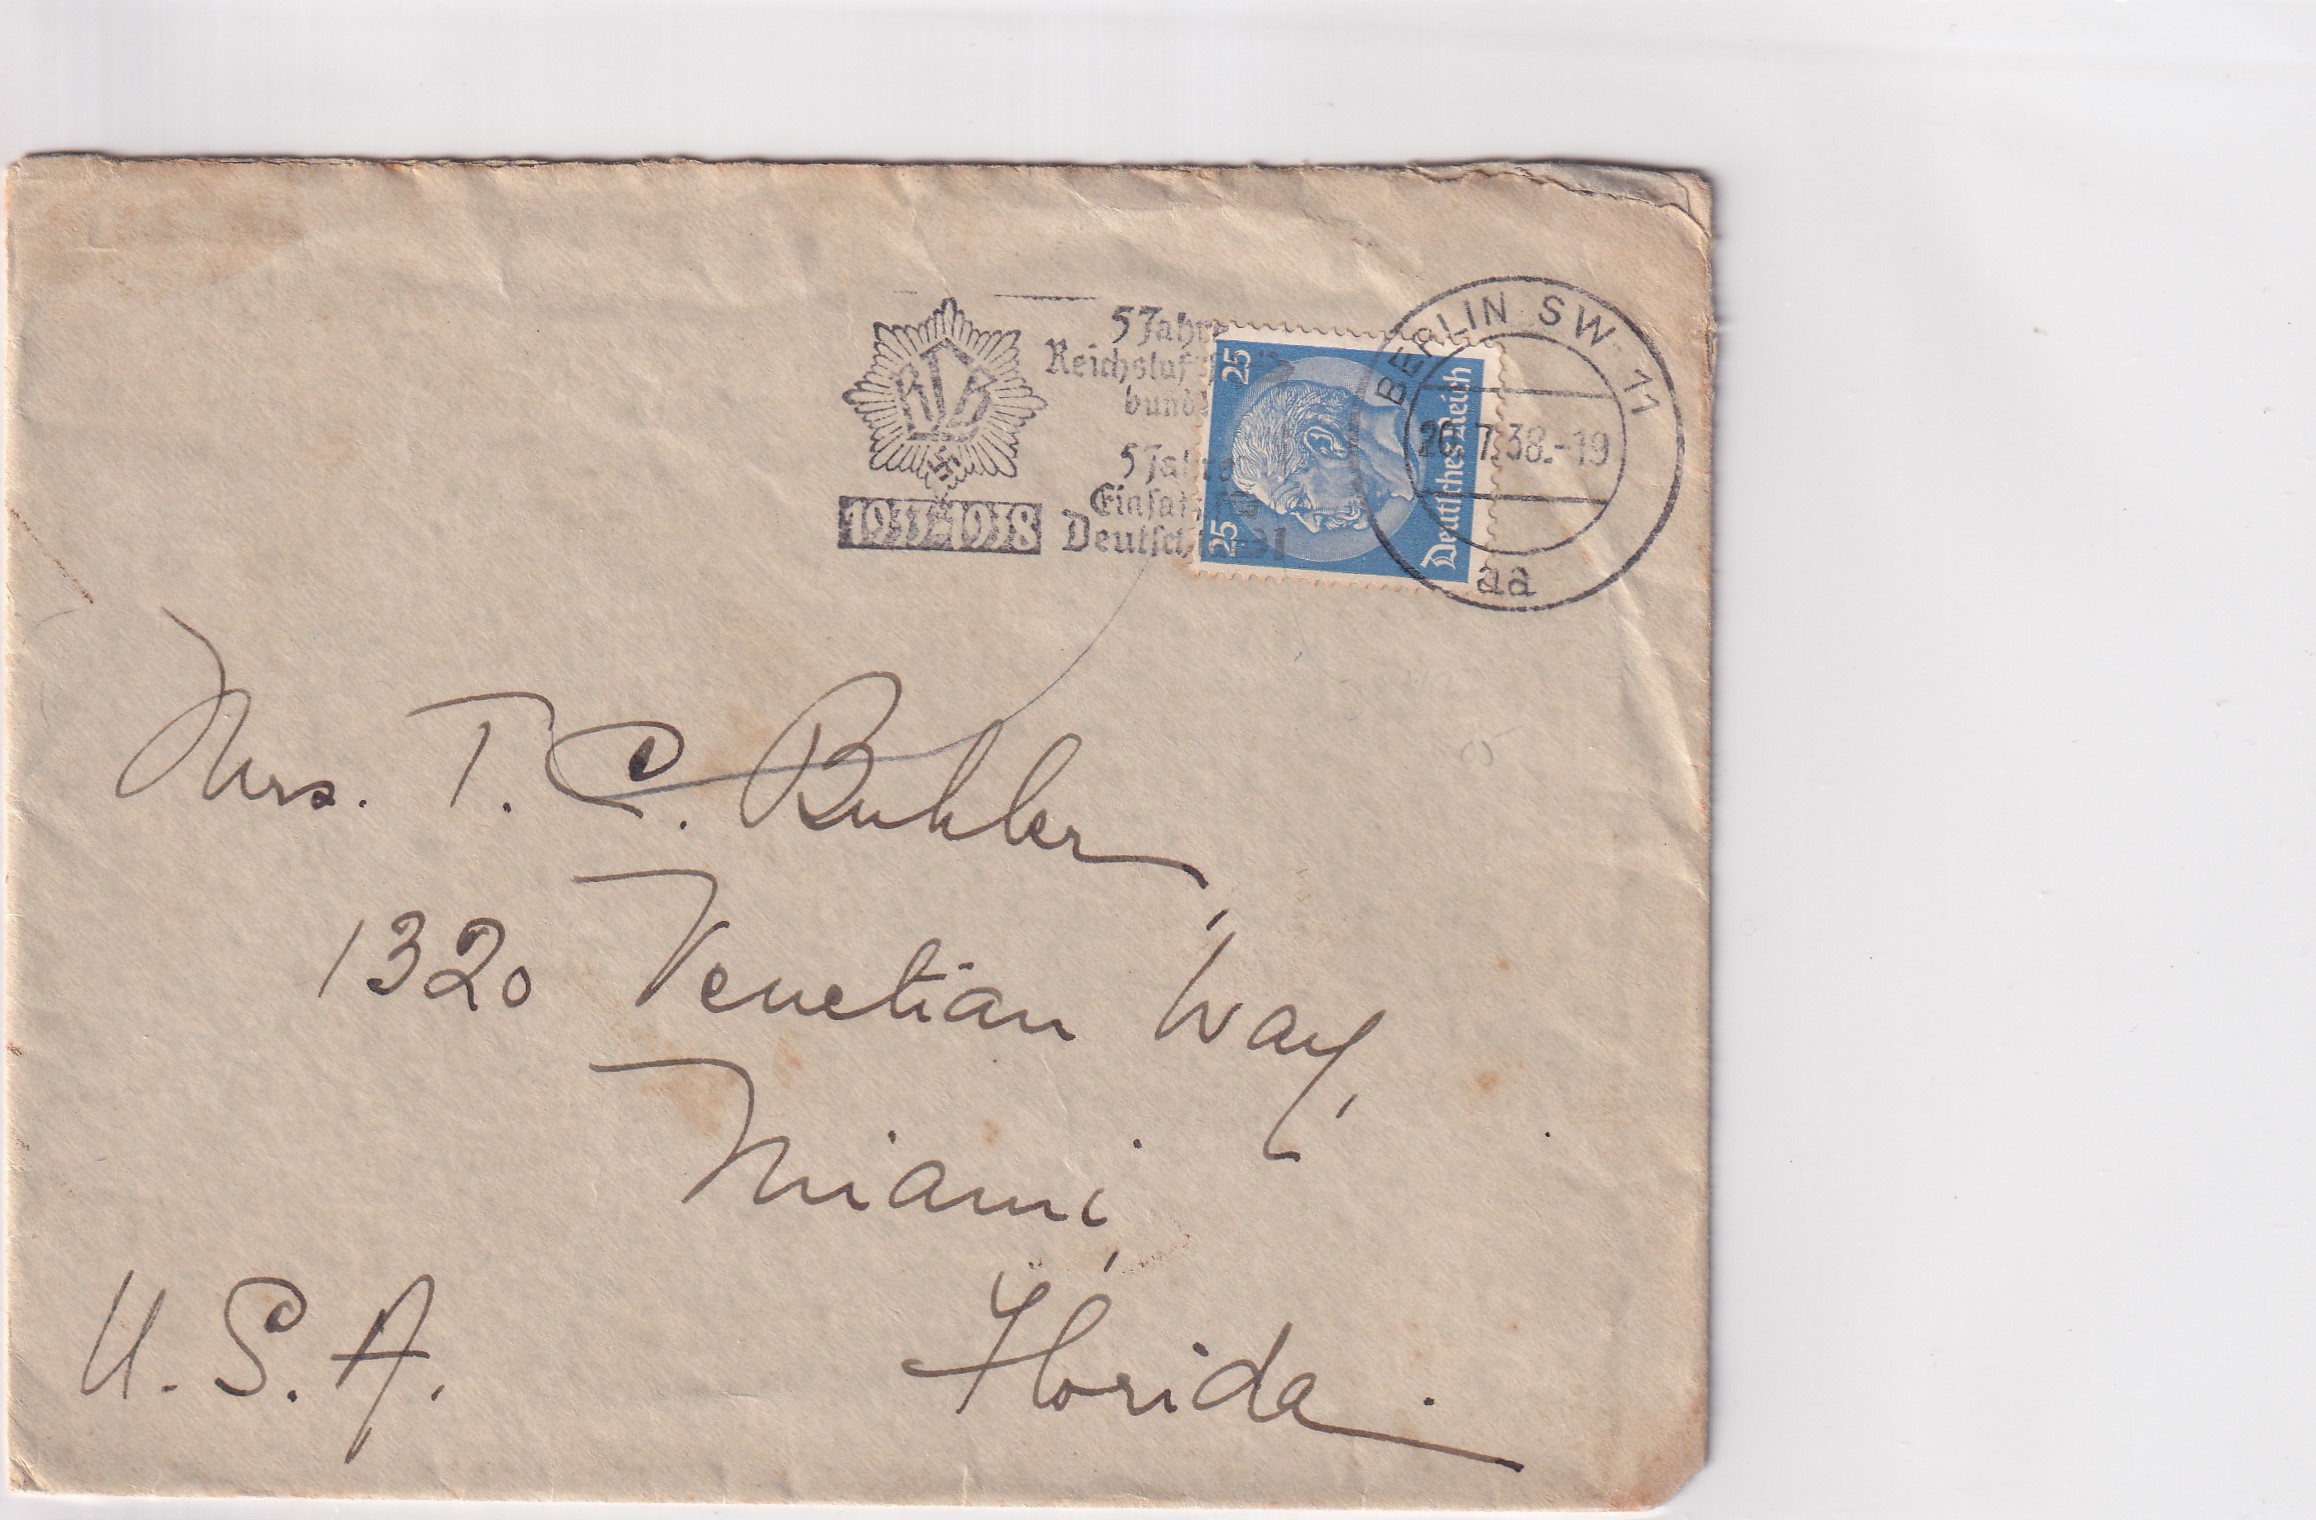 RLB
1933-1938
5 Jahre
Reichsluftschutz
bund
5 Jahre
Einsatz für
Deutschland
25
25
Deutsches Reich
BERLIN SW 11
7.38.-19
aa
Mrs. T. C. Buhler,
1320 Venetian Way,
Miami,
Florida.
U.S.A.